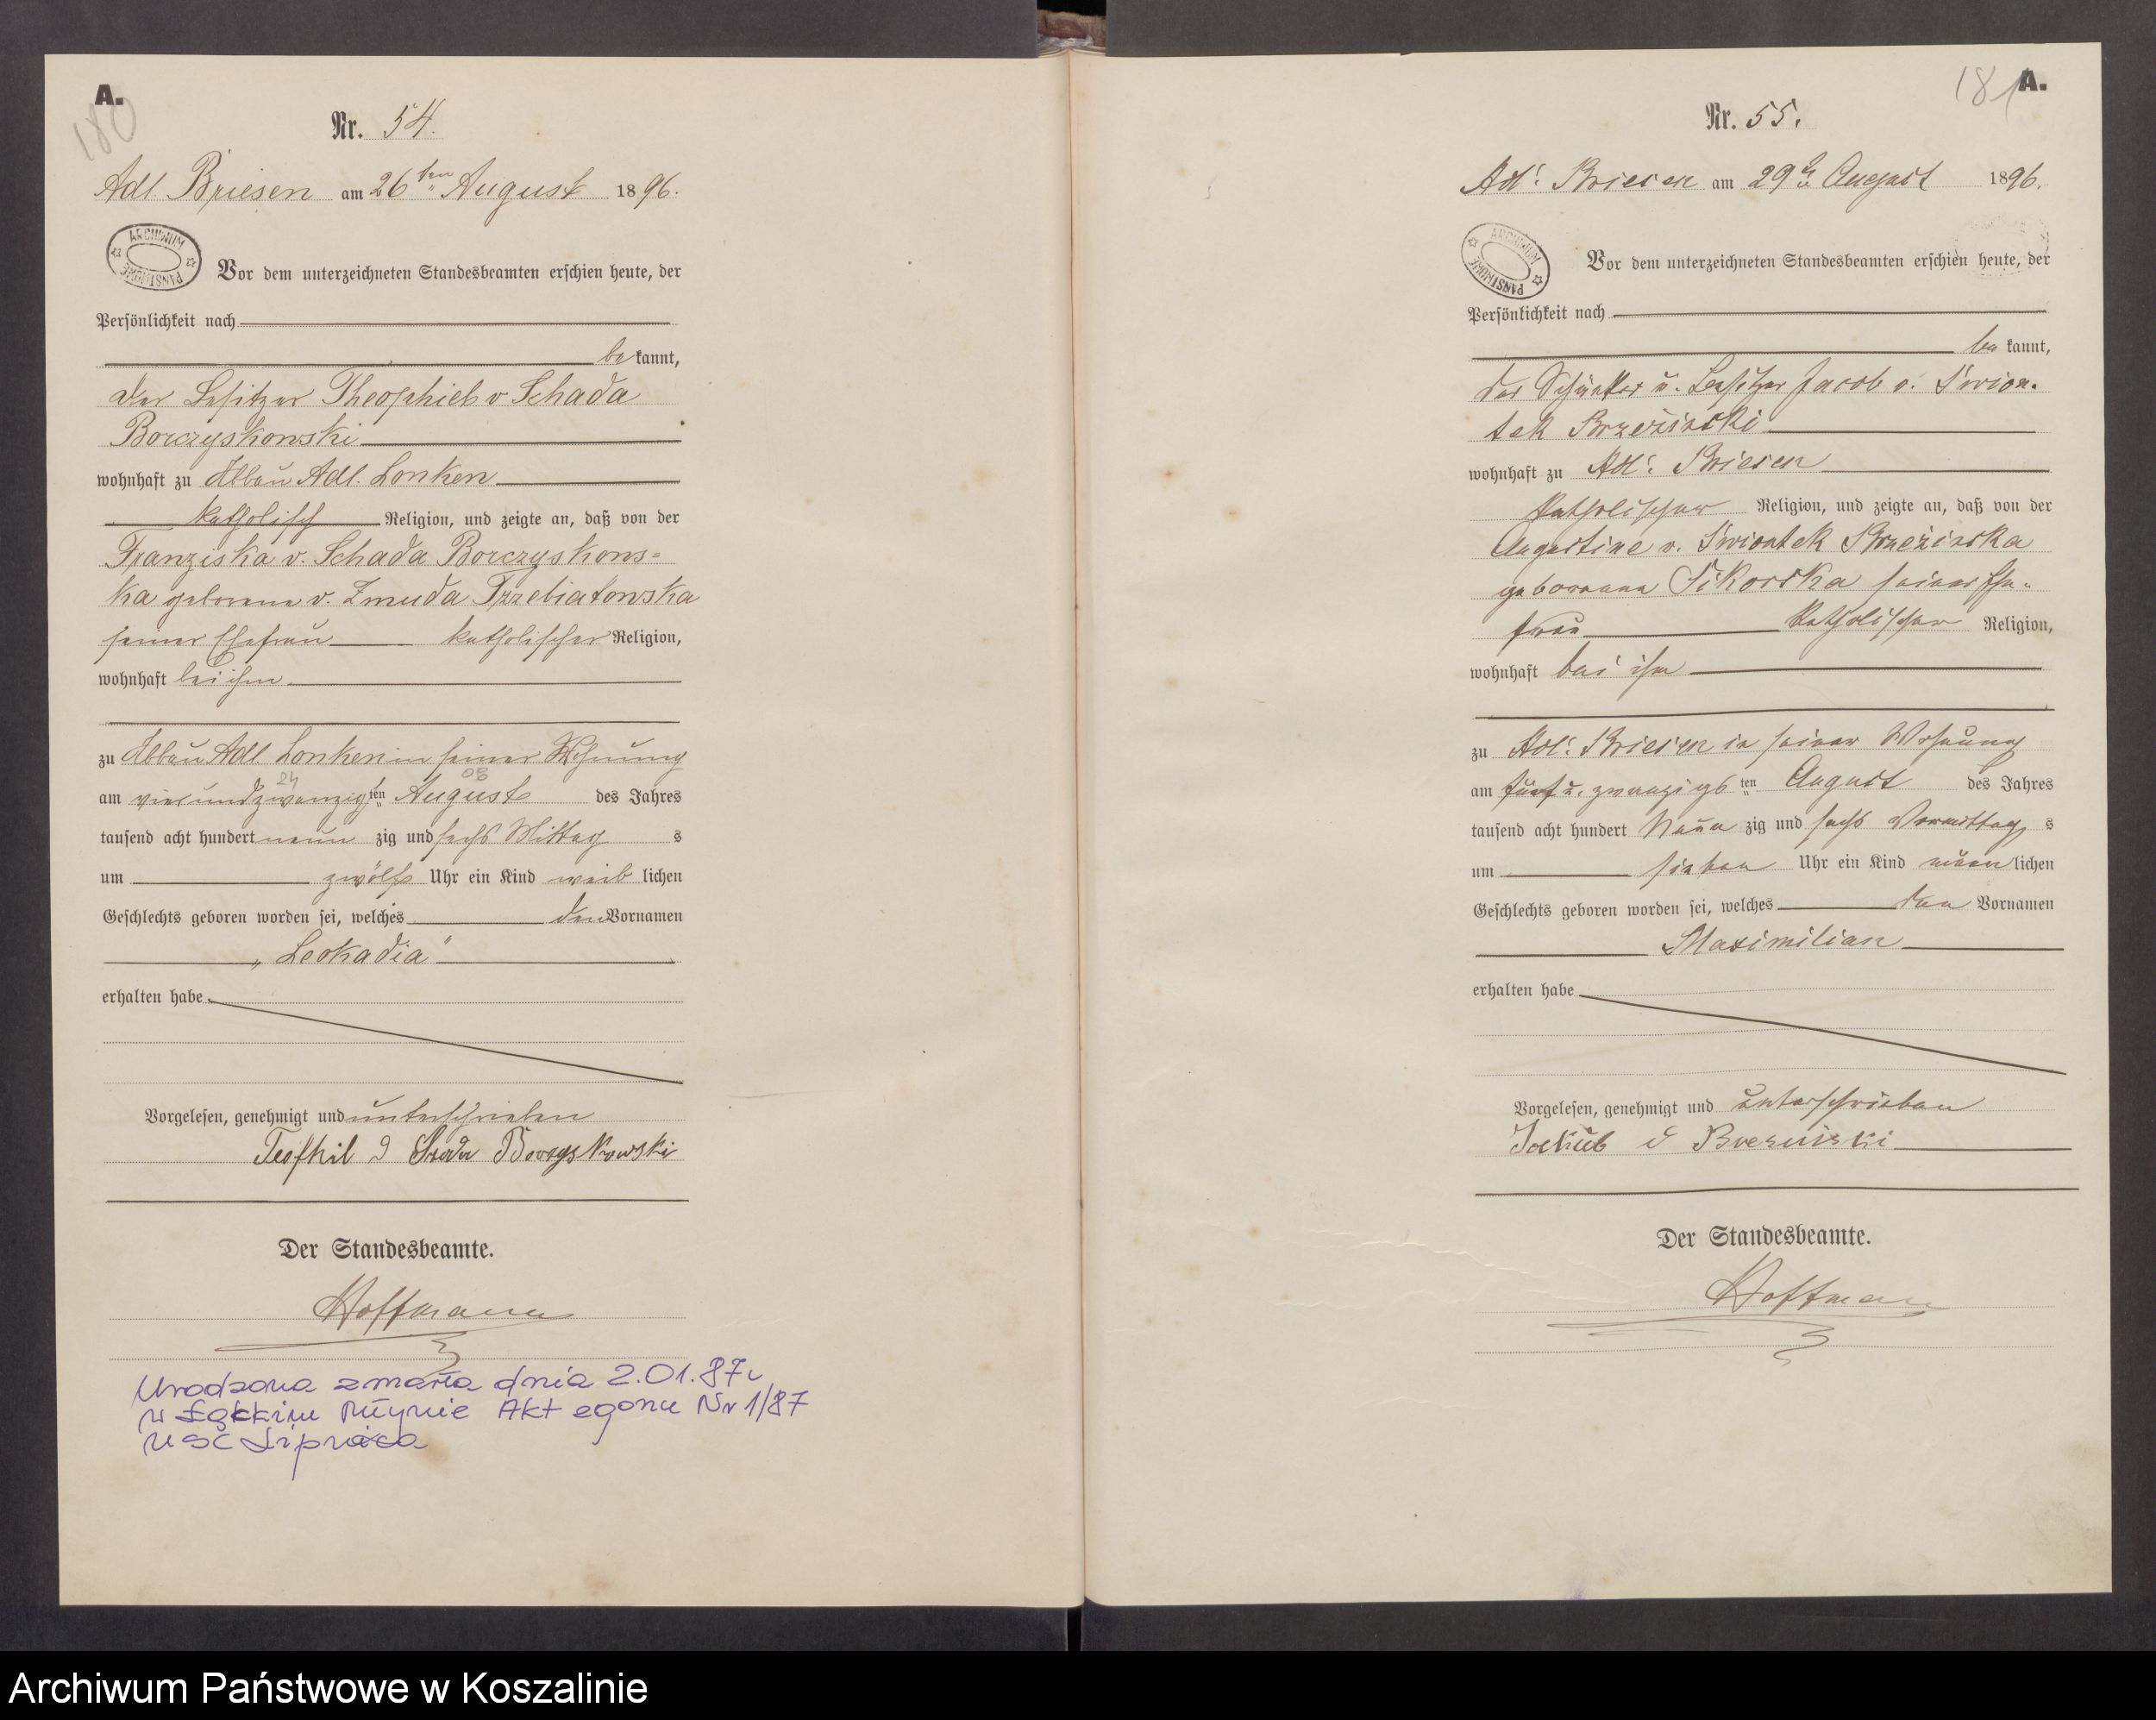 A.
180
Nr. 54.
Adl. Briesen am 26ten August 1896.
ARCHIWUM PAŃSTWOWE
Vor dem unterzeichneten Standesbeamten erschien heute, der
Persönlichkeit nach
bekannt,
der Besitzer Theophiel v Schada
Borczyskowski
wohnhaft zu Abbau Adl. Lonken
katholisch Religion, und zeigte an, daß von der
Franziska v. Schada Borczyskows=
ka geborene v. Zmuda Trzebiatowska
seiner Ehefrau katholischer Religion,
wohnhaft bei ihm
zu Abbau Adl Lonken in seiner Wohnung
24 08
am vierundzwanzigten August des Jahres
tausend acht hundert neun zig und sechs Mittag s
um zwölf Uhr ein Kind weib lichen
Geschlechts geboren worden sei, welches den Vornamen
„Leokadia"
erhalten habe
Vorgelesen, genehmigt und unterschrieben
Teofhil Borzyskowski
Der Standesbeamte.
Hoffmann
Urodzona zmarła dnia 2.01.87r
w Łąckim Młynie Akt zgonu Nr 1/87
USC Lipnica
181
A.
Nr. 55.
Adl. Briesen am 29t August 1896.
ARCHIWUM PAŃSTWOWE
Vor dem unterzeichneten Standesbeamten erschien heute, der
Persönlichkeit nach
be kannt,
der u. Besitzer Jacob v. Swion-
tek Brzezinski
wohnhaft zu Adl. Briesen
katholischer Religion, und zeigte an, daß von der
Augustine v. Swiontek Brzezinska
geborenen Sikorska seiner Ehe-
frau katholischer Religion,
wohnhaft bei ihm
zu Adl. Briesen in seiner Wohnung
am fünf u. zwanzigsten August des Jahres
tausend acht hundert Neun zig und sechs Vormittag s
um sieben Uhr ein Kind männlichen
Geschlechts geboren worden sei, welches den Vornamen
Maximilian
erhalten habe
Vorgelesen, genehmigt und unterschrieben
Jockub v Bresinski
Der Standesbeamte.
Hoffmann
Archiwum Państwowe w Koszalinie